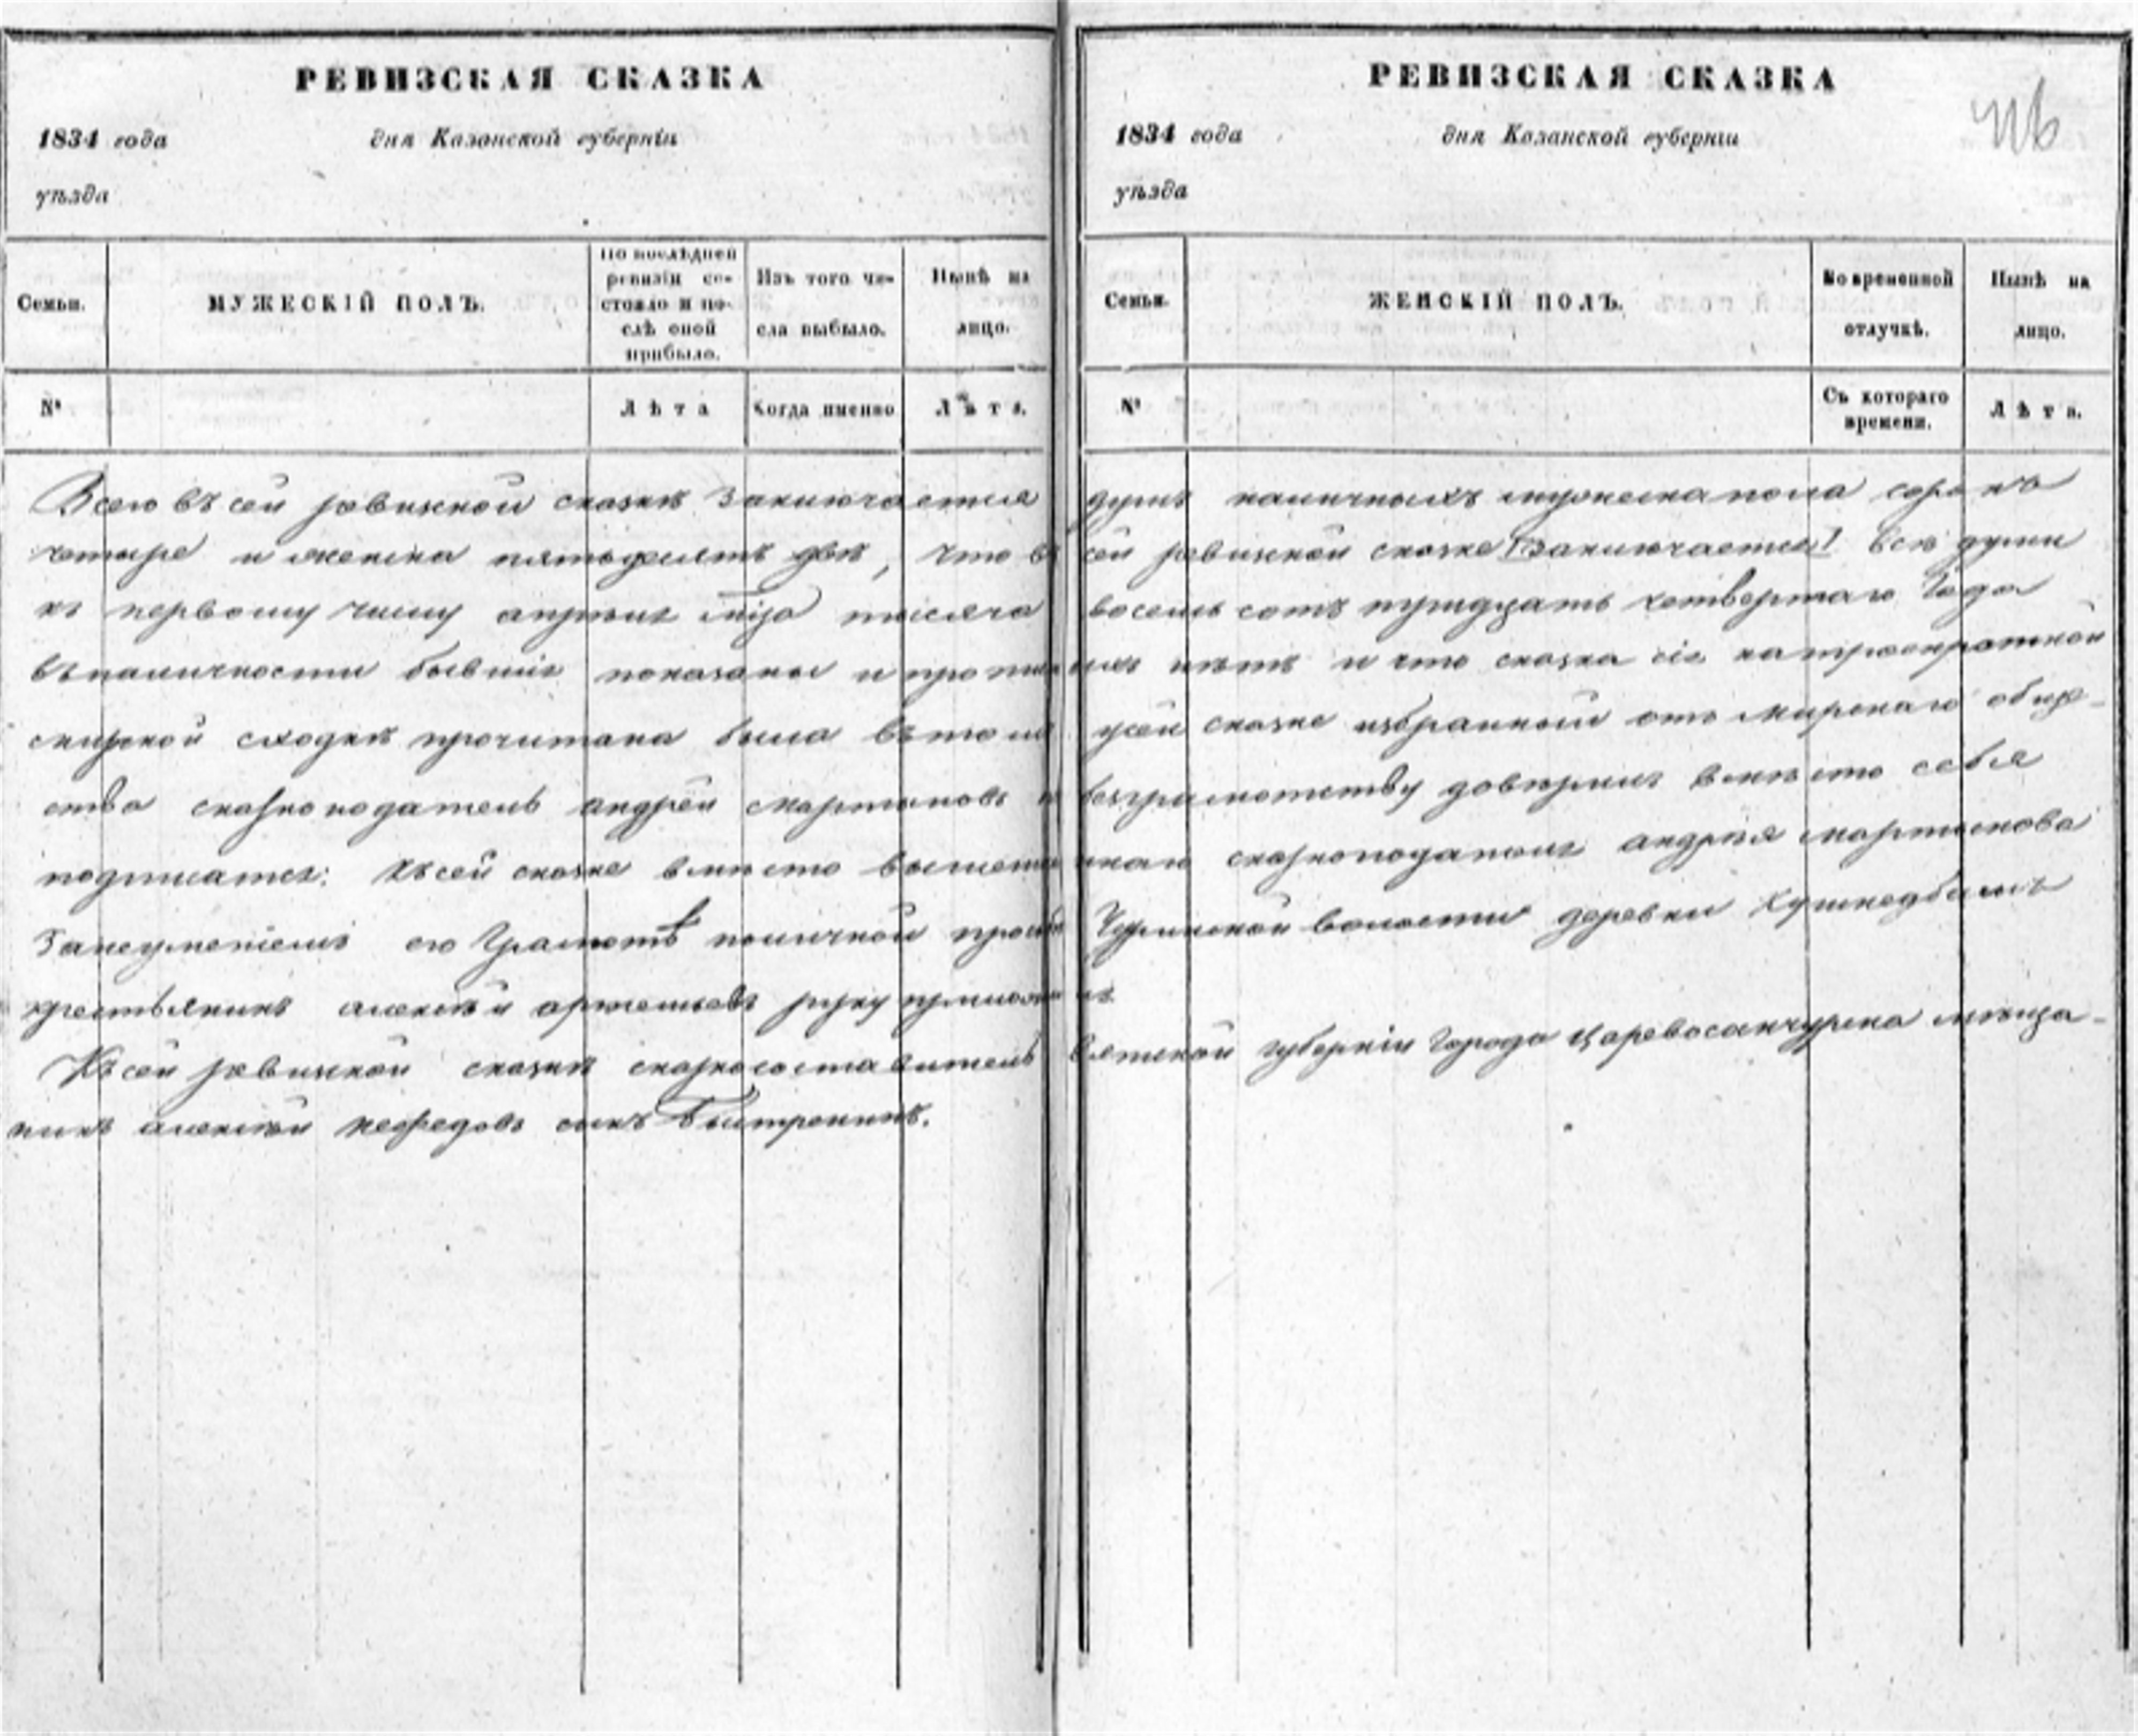 РЕВИЗСКАЯ СКАЗКА
1834 года дня Казанской губерніи
уѣзда
Семьи. МУЖЕСКІЙ ПОЛЪ. По послѣдней ревизіи состояло и послѣ оной прибыло. Изъ того числа выбыло. Нынѣ на лицо.
№ Лѣта Когда именно Лѣта.
РЕВИЗСКАЯ СКАЗКА
1834 года дня Казанской губерніи
уѣзда
Семьи. ЖЕНСКІЙ ПОЛЪ. Во временной отлучкѣ. Нынѣ на лицо.
№ Съ котораго времени. Лѣта.
Всего въ сей ревизкой сказкѣ заключается душъ наличныхъ мужеска пола сорокъ
четыре и женска пятьдесятъ двѣ, что въ сей ревизкой сказке заключается всѣ души
къ первому числу апрѣля тысяча восемь сотъ тридцать четвертаго года
въ наличности бывшіе показаны и нѣтъ и что сказка сія на троекратной
мирской сходкѣ прочитана была сей сказке избранный отъ мирскаго обще-
ства сказкоподатель андрей мартыновъ безграмотству довѣрилъ вмѣсто себя
подписатся: Къ сей сказке вместо сказкоподателя андрѣя мартынова
занеуменіемъ его грамотѣ поличной прозбе волости деревни
крестьянинъ алексѣй артемьевъ руку приложилъ
Къ сей ревизкой сказкѣ сказкосоставитель вятской губерніи города царевосанчурска мѣща-
нинъ алексѣй нефедовъ сынъ